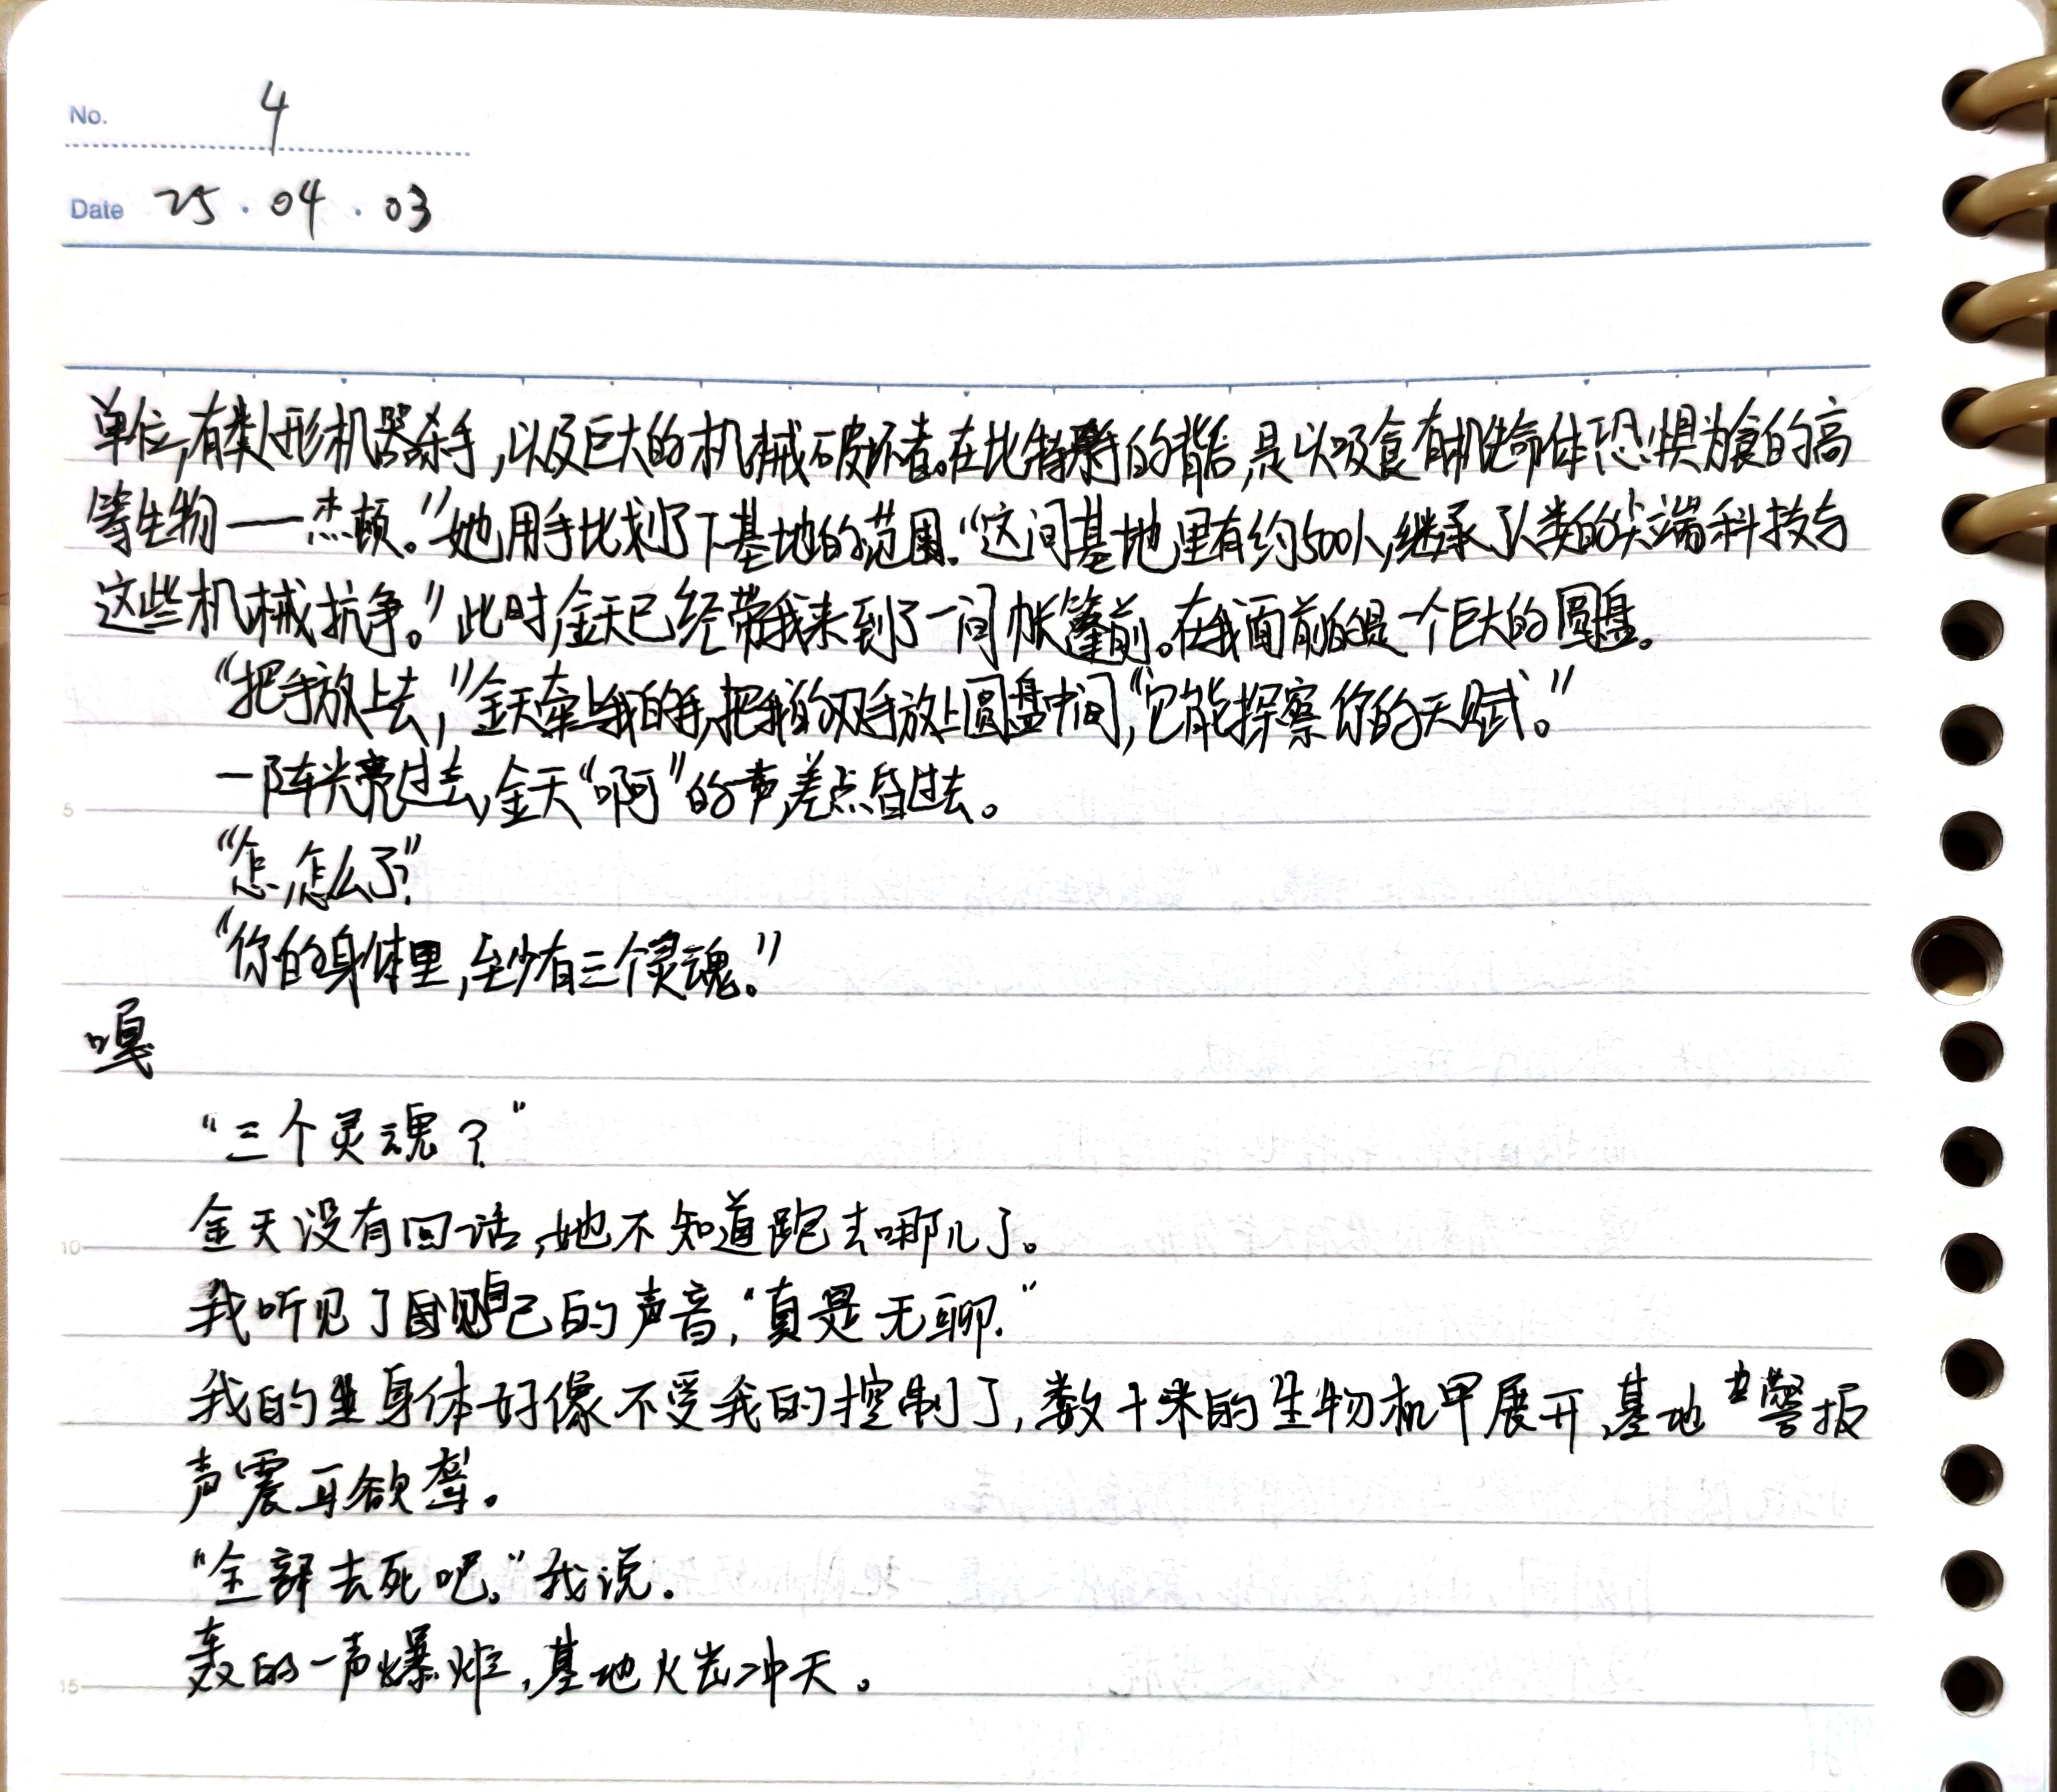 No. 4
Date 25.04.03
单位,有类人形机器杀手,以及巨大的机械破坏者。在比特的背后,是以吸食有机生命体恐惧为食的高
等生物——杰顿。”她用手比划了下基地的范围.“这间基地里有约500人,继承了人类的尖端科技与
这些机械抗争。”此时,金天已经带我来到了一间帐篷前。在我面前的是一个巨大的圆盘。
“把手放上去,”金天牵上我的手,把我的双手放上圆盘中间,“它能探察你的天赋。”
5
一阵光亮过去,金天“啊”的一声,差点昏过去。
“怎,怎么了?”
“你的身体里,至少有三个灵魂。”
嘎
“三个灵魂?”
10
金天没有回话,她不知道跑去哪儿了。
我听见了自己的声音,“真是无聊.”
我的身体好像不受我的控制了,数十米的生物机甲展开,基地警报
声震耳欲聋。
“全部去死吧。”我说。
15
轰的一声爆炸,基地火光冲天。